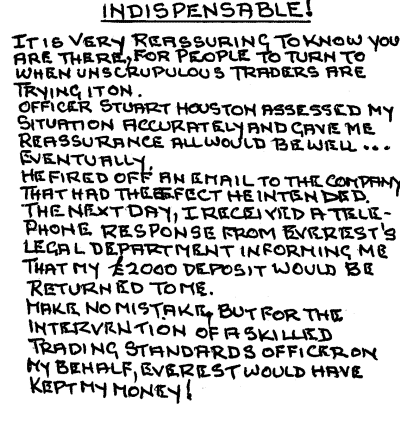 INDISPENSABLE!
IT IS VERY REASSURING TO KNOW YOU
ARE THERE, FOR PEOPLE TO TURN TO
WHEN UNSCRUPULOUS TRADERS ARE
TRYING IT ON.
OFFICER STUART HOUSTON ASSESSED MY
SITUATION ACCURATELY AND GAVE ME
REASSURANCE ALL WOULD BE WELL ...
EVENTUALLY.
HE FIRED OFF AN EMAIL TO THE COMPANY
THAT HAD THE EFFECT HE INTENDED.
THE NEXT DAY, I RECEIVED A TELE-
PHONE RESPONSE FROM EVEREST'S
LEGAL DEPARTMENT INFORMING ME
THAT MY £2000 DEPOSIT WOULD BE
RETURNED TO ME.
MAKE NO MISTAKE, BUT FOR THE
INTERVENTION OF A SKILLED
TRADING STANDARDS OFFICER ON
MY BEHALF, EVEREST WOULD HAVE
KEPT MY MONEY!